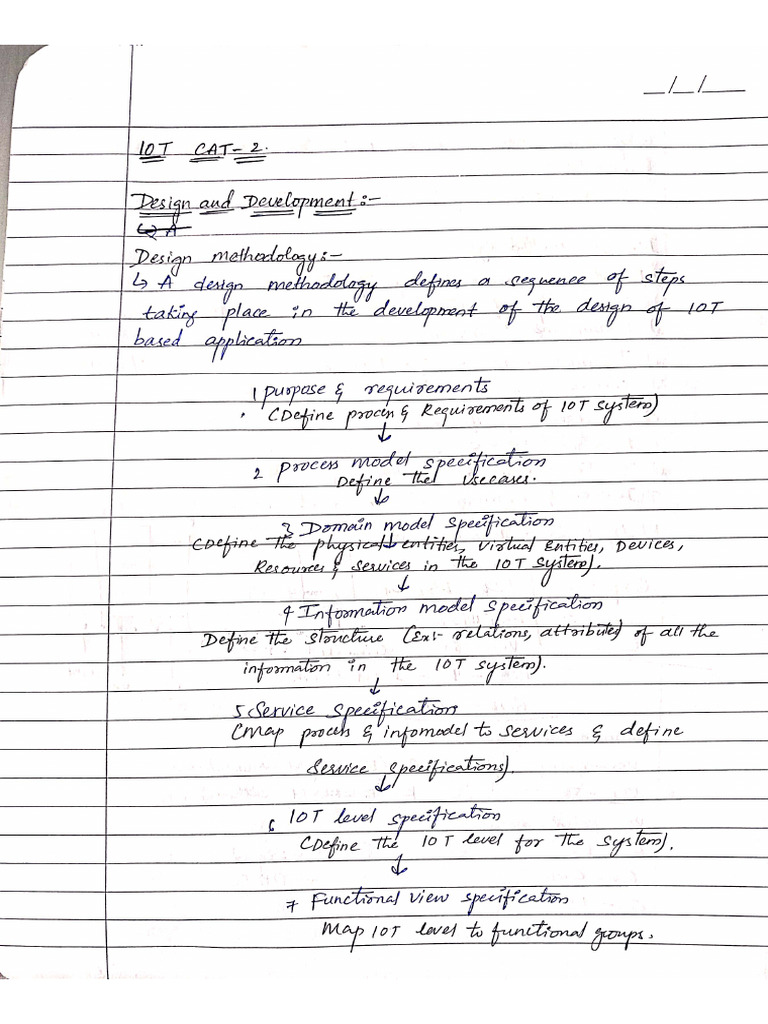 _/_/__
IOT CAT-2.
Design and Development:-
↳ A
Design methodology:-
↳ A design methodology defines a sequence of steps
taking place in the development of the design of IOT
based application
1 Purpose & requirements
(Define process & Requirements of IOT System)
↓
2 Process model specification
Define the usecases.
↓
3 Domain model Specification
(Define the physical entities, Virtual Entities, Devices,
Resources & Services in the IOT System).
↓
4 Information model Specification
Define the structure (Ex:- relations, attributes) of all the
information in the IOT system).
↓
5 Service Specification
(Map process & infomodel to services & define
Service specifications).
↓
6 IOT level specification
(Define the IOT level for the system).
↓
7 Functional view specification
Map IOT level to functional groups.